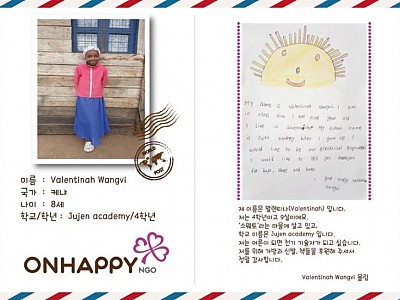 이름 : Valentinah Wangvi
국가 : 케냐
나이 : 8세
학교/학년 : Jujen academy/4학년
ONHAPPY
NGO
My Name is Valentinah Wangvi I am
in class four I am nine year old
I live in My school name
is Jujen academy When I grow up I
would like to be an electrical engineer
I would like to you
for bags, shoes and books
your loving valentinah
wangvi
제 이름은 발렌티나(Valentinah) 입니다.
저는 4학년이고 9살이에요.
'소웨토'라는 마을에 살고 있고,
학교 이름은 Jujen academy 입니다.
저는 어른이 되면 전기 기술자가 되고 싶습니다.
저를 위해 가방과 신발, 책들을 후원해 주셔서
정말 감사합니다.
Valentinah Wangvi 올림